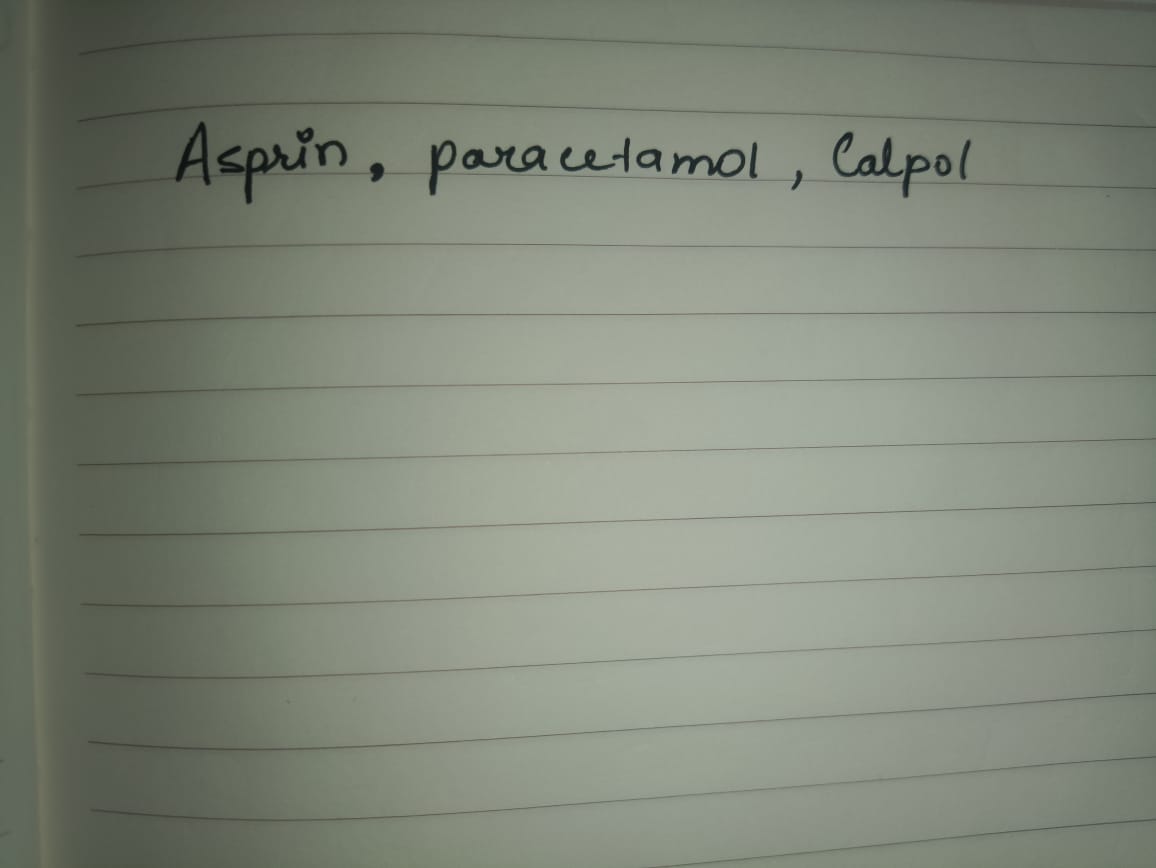 Asprin, paracetamol, Calpol